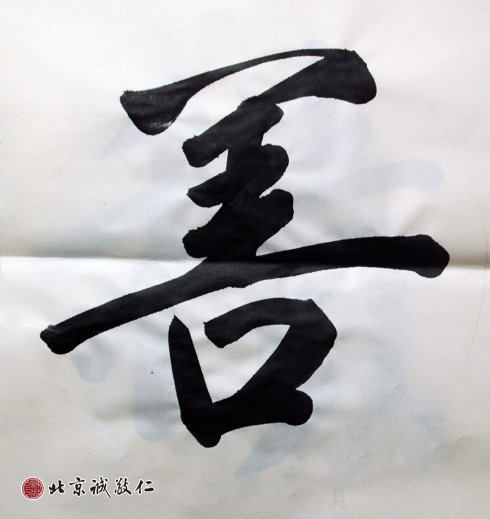 善
北京诚敬仁